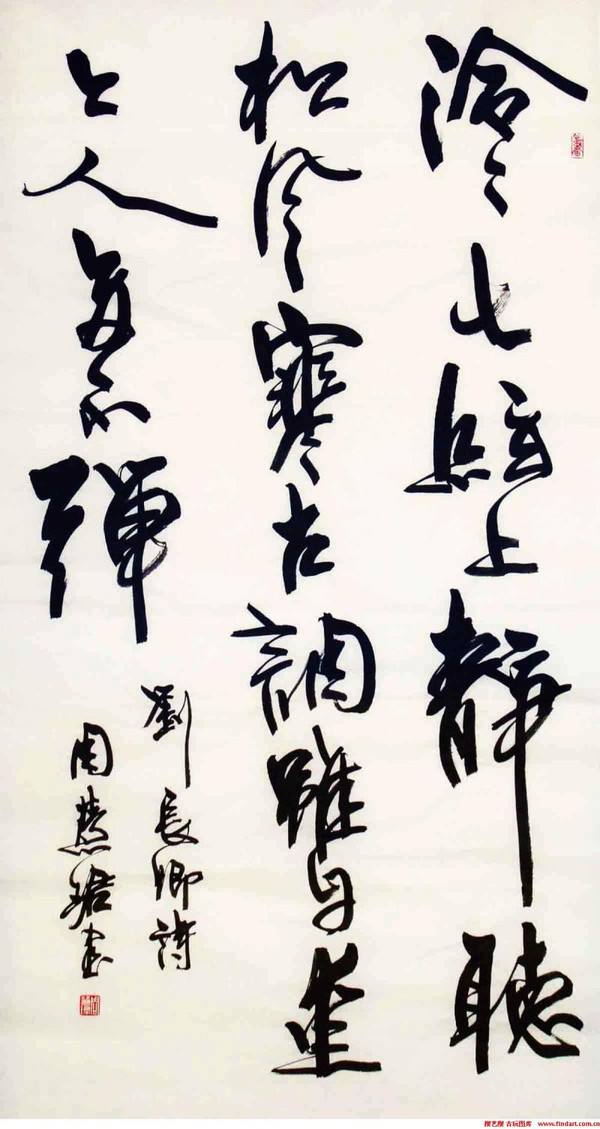 泠々七絃上靜聽
松風寒古調雖自愛
今人多不彈
劉長卿詩
周慧珺書
搜艺搜 古玩图库 www.findart.com.cn